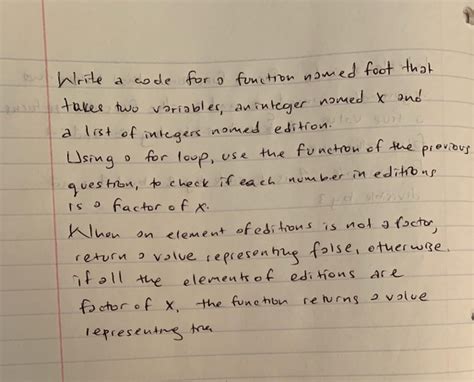 Write a code for a function named foot that
takes two variables, an integer named x and
a list of integers named edition.
Using a for loop, use the function of the previous
question, to check if each number in editions
is a factor of x.
When an element of editions is not a factor,
return a value representing false, otherwise.
if all the elements of editions are
factor of x, the function returns a value
representing tru